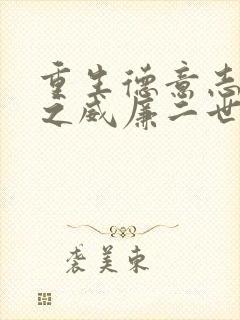 重生德意志
之威廉二世
袭美东